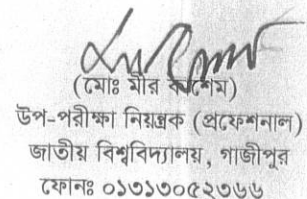 (মোঃ মীর কাশেম)
উপ-পরীক্ষা নিয়ন্ত্রক (প্রফেশনাল)
জাতীয় বিশ্ববিদ্যালয়, গাজীপুর
ফোনঃ ০১৭১৭০৫২৩৬৬